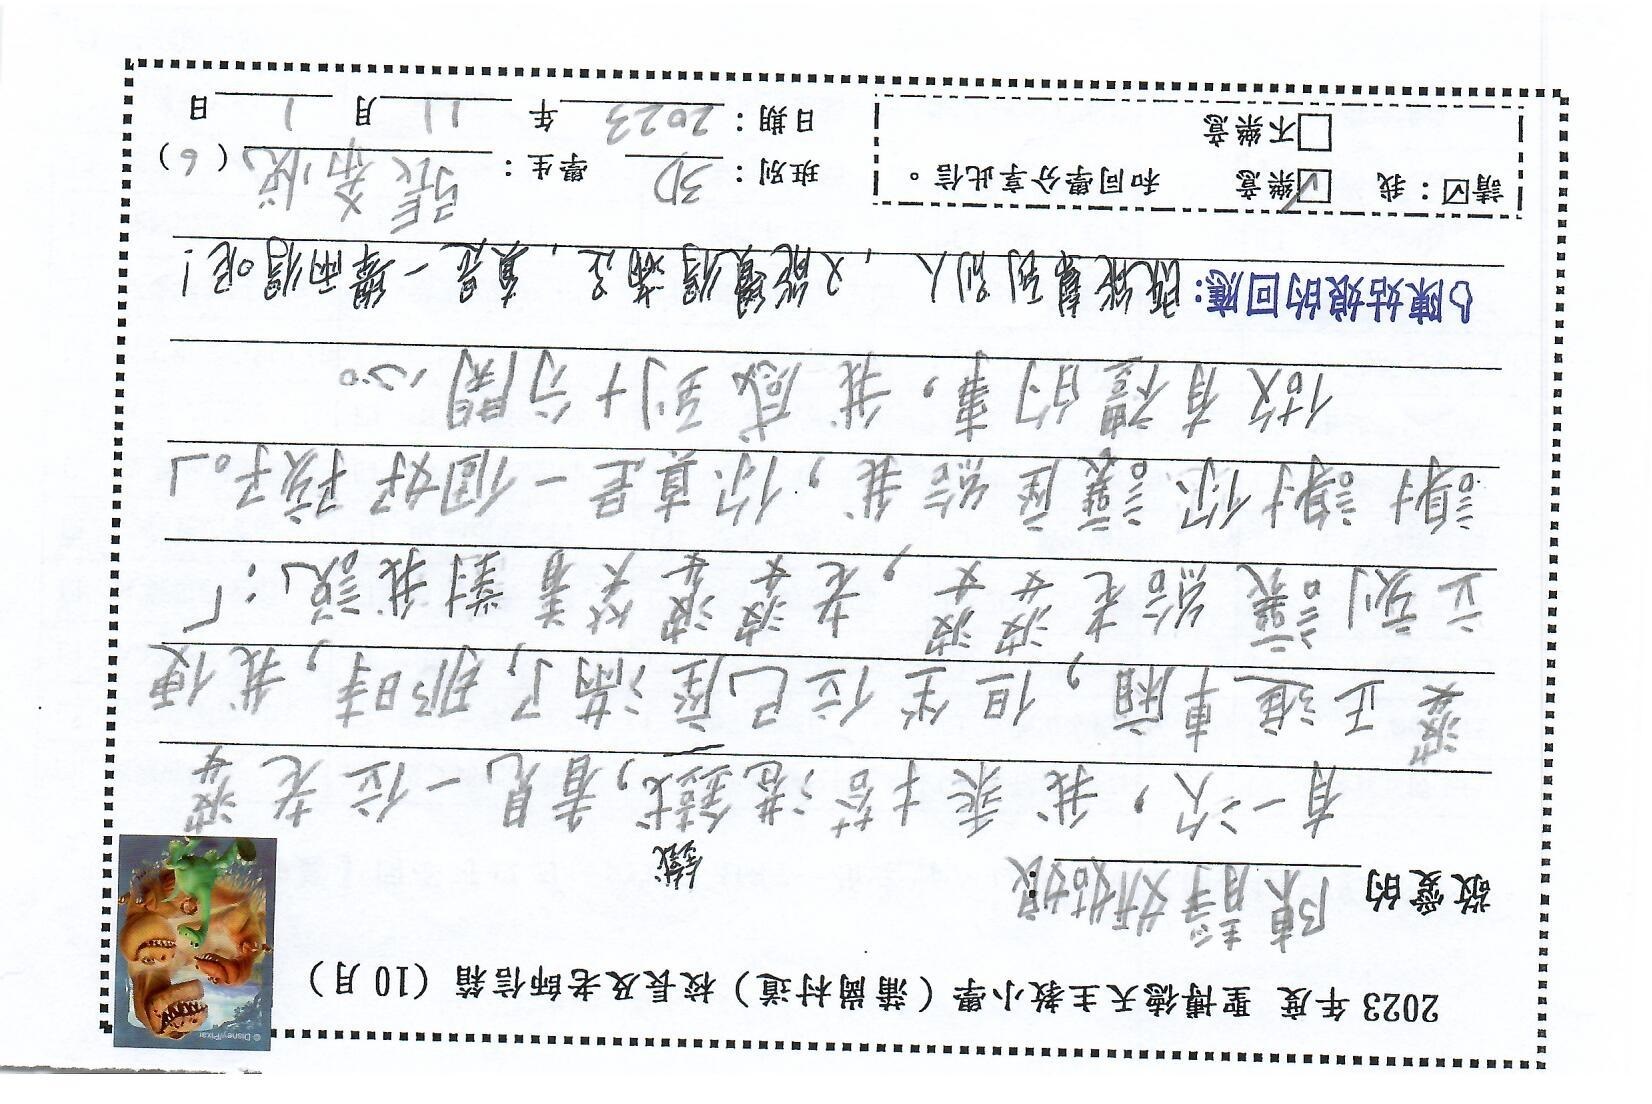 2023 年度 聖博德天主教小學（蒲崗村道）校長及老師信箱（10 月）
敬愛的 陳月 姑娘：
鐵
有一次，我乘搭港鐵，看見一位老婆
婆正進車廂，但坐位已座滿了，那時，我便
立刻讓給老婆婆，老婆婆笑着對我說：「
謝謝你讓座給我，你真是一個好孩子。」
做有禮的事，我感到十分開心。
陳姑娘的回應：既能幫到別人，又能獲得滿足，真是一舉兩得呢！
請☑：我 ☑樂意 和同學分享此信。
□不樂意
班別：3D 學生：張希悅（6）
日期：2023 年 11 月 1 日
© Disney/Pixar